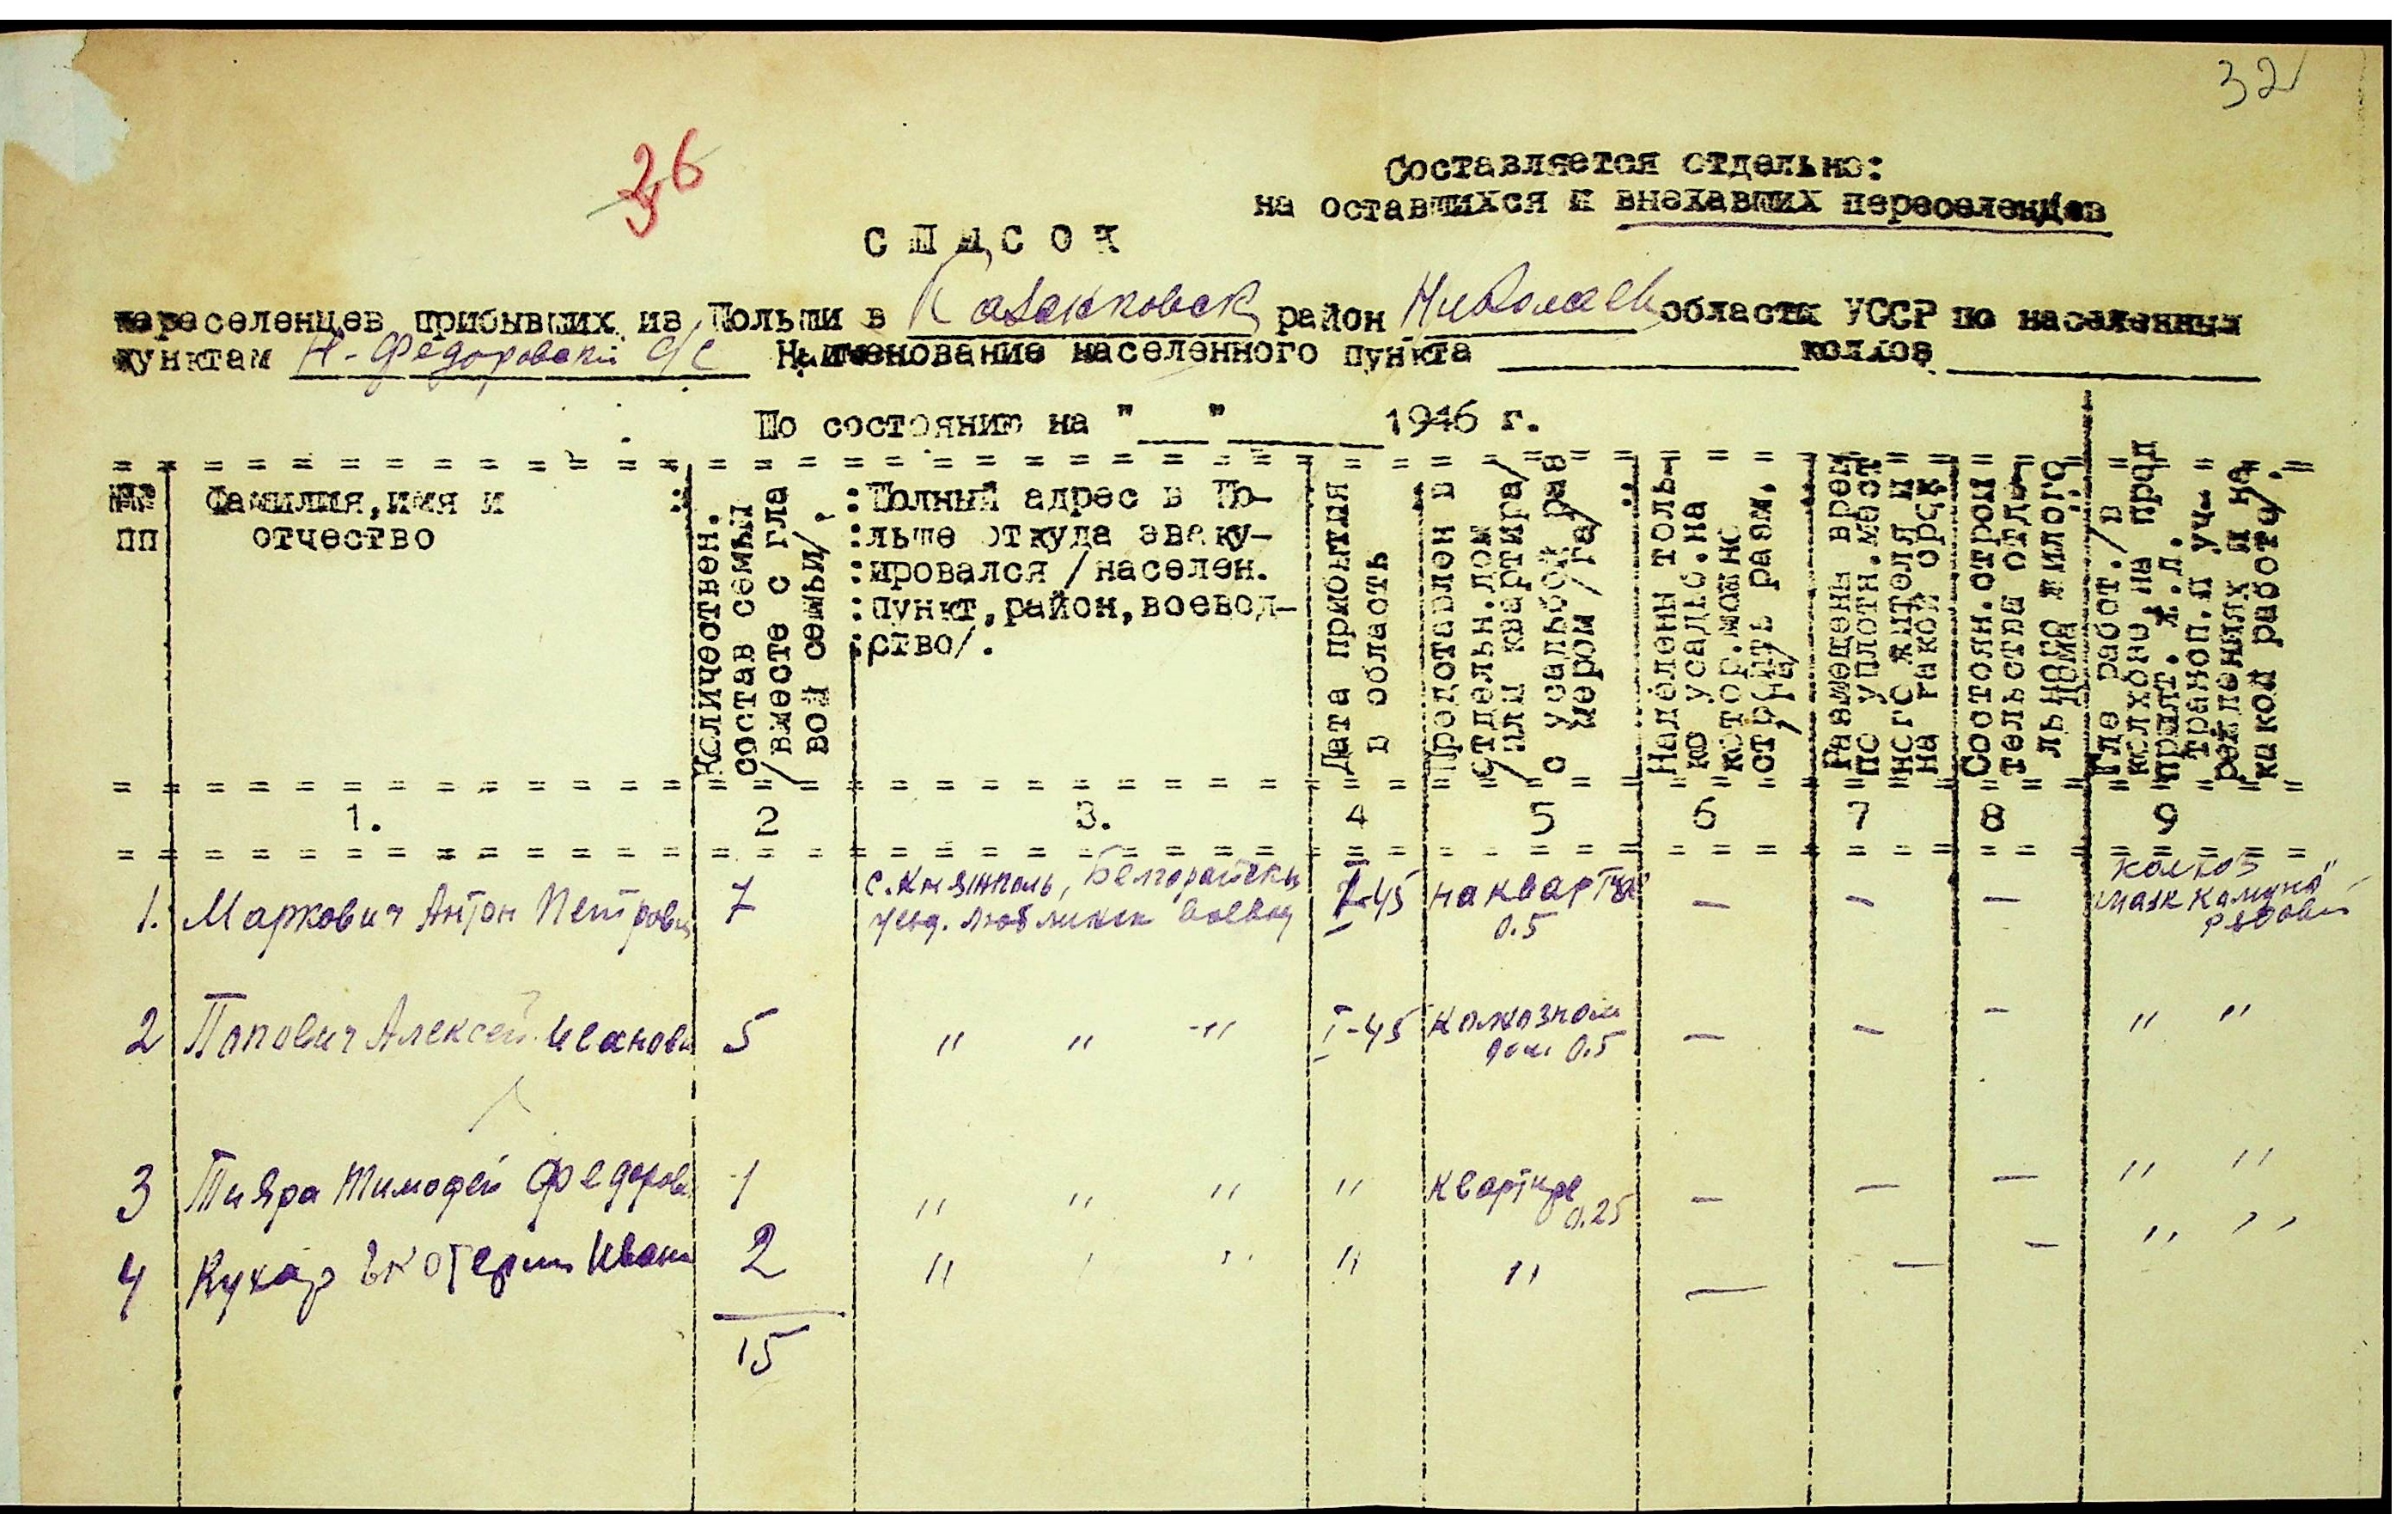 32
36
Составляется отдельно:
на оставшихся и внехавших переселенцев
С П И С О К
переселенцев прибывших из Польши в Казанковск район Николаев области УССР по населенных
пунктам Н-Федоровский с/с Наименование населенного пункта ______ колхоз ______
По состоянию на "___"______1946 г.
№№ пп
Фамилия, имя и отчество
Количествен. состав семьи /вместе с главой семьи/.
:Полный адрес в По-
:льше откуда эваку-
:ировался /населен.
:пункт, район, воевод-
:ство/.
Дата прибытия в область
Предоставлен в отдельн.дом /или квартира/ с усадьбой размером /га/
Наделены только усадьб.на котор.можно строить разм. /га/
Размещены врем по уплотн.мест ного жителя и на такой орск
Состоян.строительства отдельного жилого дома
Где работ./в колхозе, на пред прият. ж.д. трансп.и уч- реждениях и на какой работе/.
1. 2 3. 4 5 6 7 8 9
1. Маркович Антон Петрови 7 с.Княжполь, Белгорайскы уезд. Люблинск воевод I-45 на квартире 0.5 — — — колхоз "Маяк Комуно" рядовы
2 Попович Алексей Иванови 5 " " -" I-45 колхозном доме 0.5 — — - " "
3 Тияра Тимофей Федоров 1 " " " " квартире 0.25 — — — " "
4 Кухар Екотерин Иван 2 " ' " " " — — — " "
15